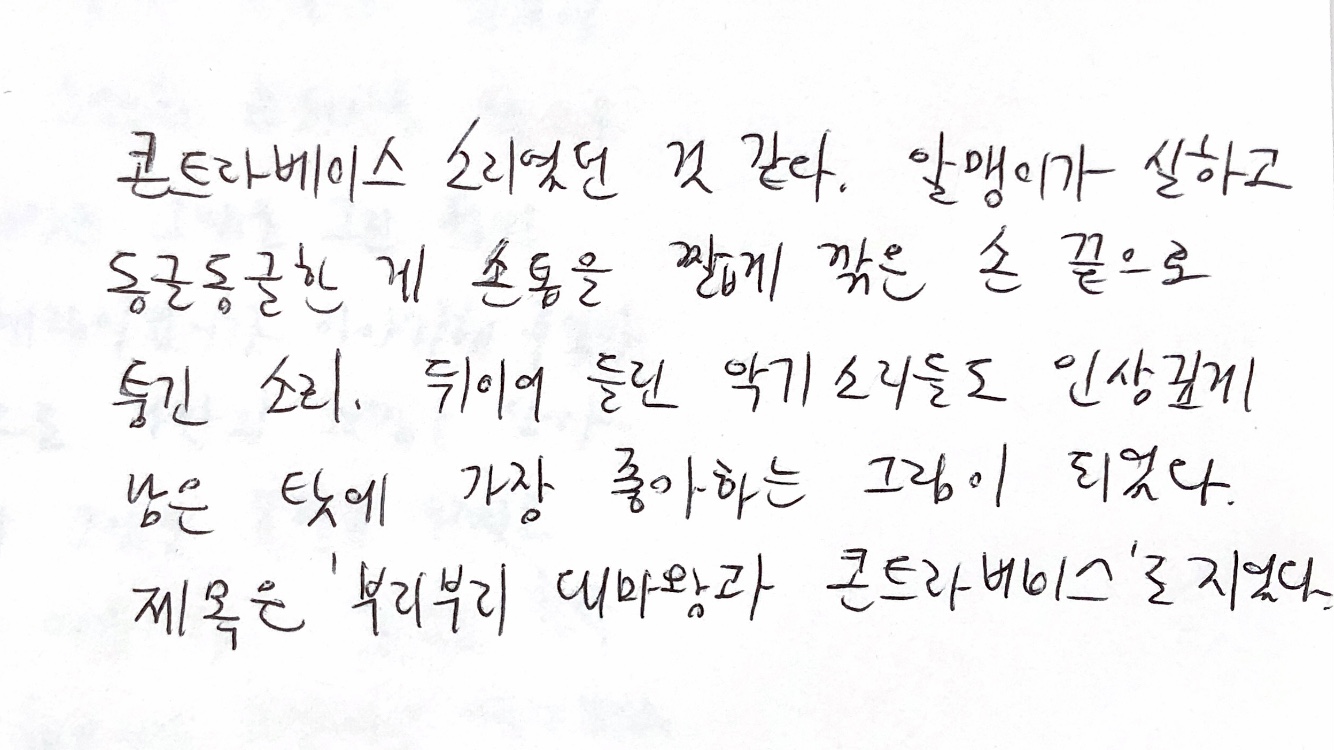 콘트라베이스 소리였던 것 같다. 알맹이가 실하고
동글동글한 게 손톱을 짧게 깎은 손 끝으로
퉁긴 소리. 뒤이어 들린 악기 소리들도 인상깊게
남은 탓에 가장 좋아하는 그림이 되었다.
제목은 '부리부리 대마왕과 콘트라베이스'로 지었다.